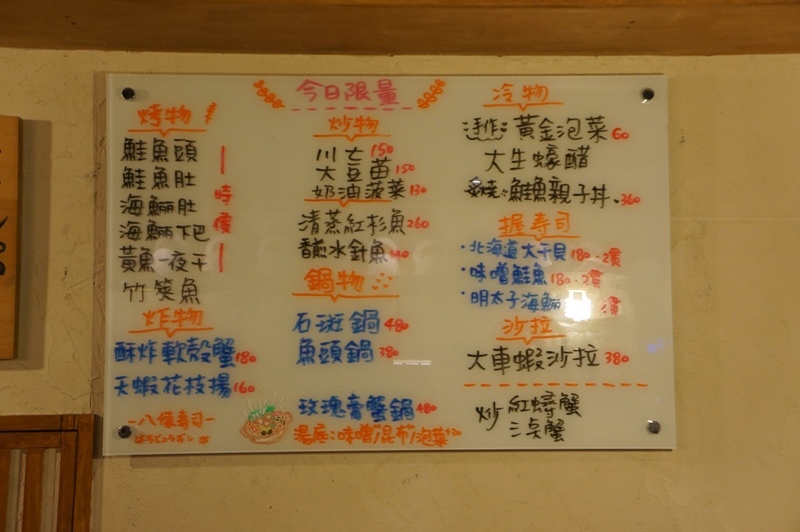 今日限量
烤物
鮭魚頭
鮭魚肚
海鱺肚
海鱺下巴
黃魚一夜干
竹筴魚
時價
炸物
酥炸軟殼蟹 180
天蝦花枝揚 160
八條壽司
炒物
川七 150
大豆苗 150
奶油菠菜 130
清蒸紅杉魚 260
香煎水針魚
鍋物
石斑鍋 480
魚頭鍋 380
玫瑰膏蟹鍋 480
湯底:味噌/昆布/泡菜+30
冷物
手作:黃金泡菜 60
大生蠔醋
炙燒:鮭魚親子丼 360
握壽司
·北海道大干貝 180·2貫
·味噌鮭魚 180·2貫
·明太子海鱺 貫
沙拉
大車蝦沙拉 380
炒 紅蟳蟹
三點蟹